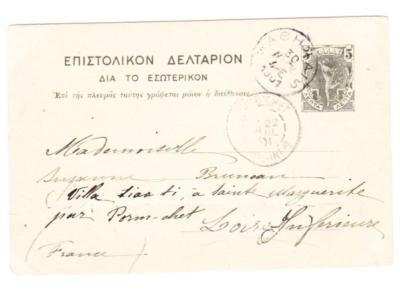 ΕΠΙΣΤΟΛΙΚΟΝ ΔΕΛΤΑΡΙΟΝ
ΔΙΑ ΤΟ ΕΣΩΤΕΡΙΚΟΝ
Ἐπὶ τῆς πλευρᾶς ταύτης γράφεται μόνον ἡ διεύθυνσις.
5
ΑΘΗΝΑΙ 5
Mademoiselle
Suzanne Bruneau
(Villa à Sainte Marguerite
par Pornichet
Loire Inférieure
(France)